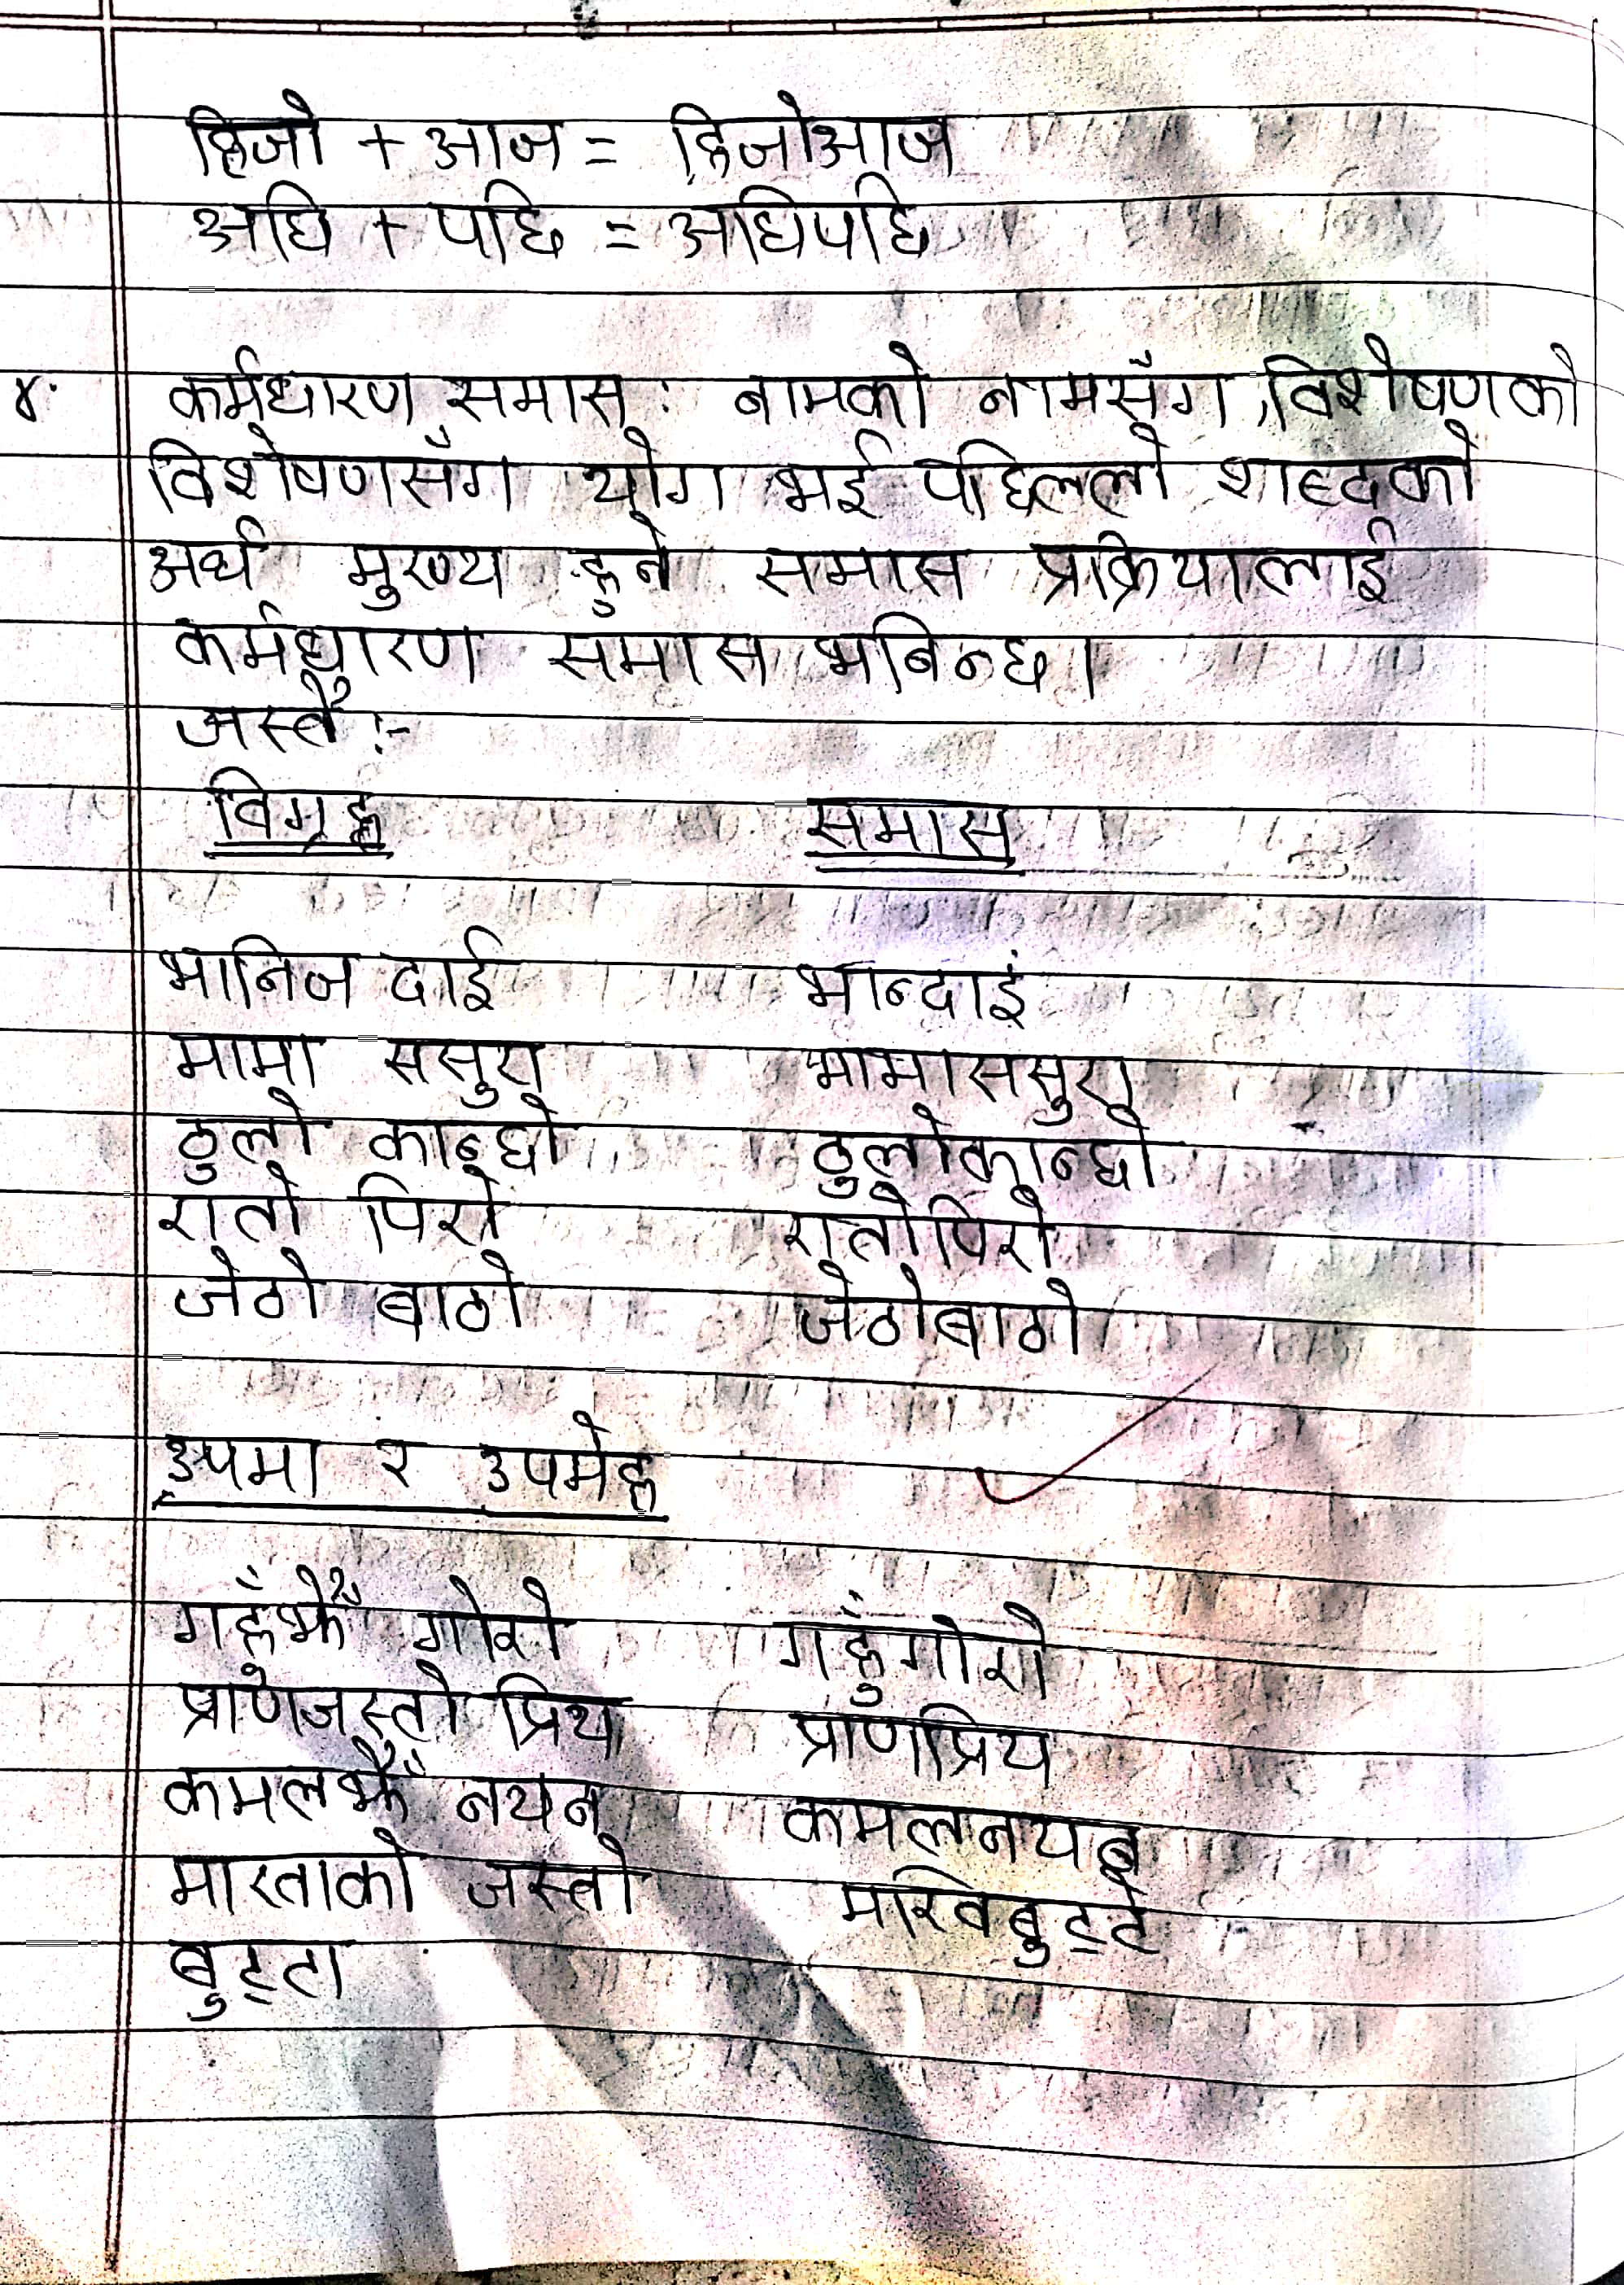 हिजो + आज = हिजोआज
अघि + पछि = अघिपछि
४. कर्मधारण समास : नामको नामसँग, विशेषणको
विशेषणसँग योग भई पहिलो शब्दको
अर्थ मुख्य हुने समास प्रक्रियालाई
कर्मधारण समास भनिन्छ।
जस्तै :-
विग्रह समास
भानिज दाई भान्दाइ
मामा ससुरा मामाससुरा
ठुलो कान्छो ठुलोकान्छो
रातो पिरो रातोपिरो
जेठो बाठो जेठोबाठो
उपमा र उपमेह
गहुँझैँ गोरो गहुँगोरो
प्राणजस्तो प्रिय प्राणप्रिय
कमलझैँ नयन कमलनयन
माखाको जस्तो माखिबुट्टे
बुट्टा